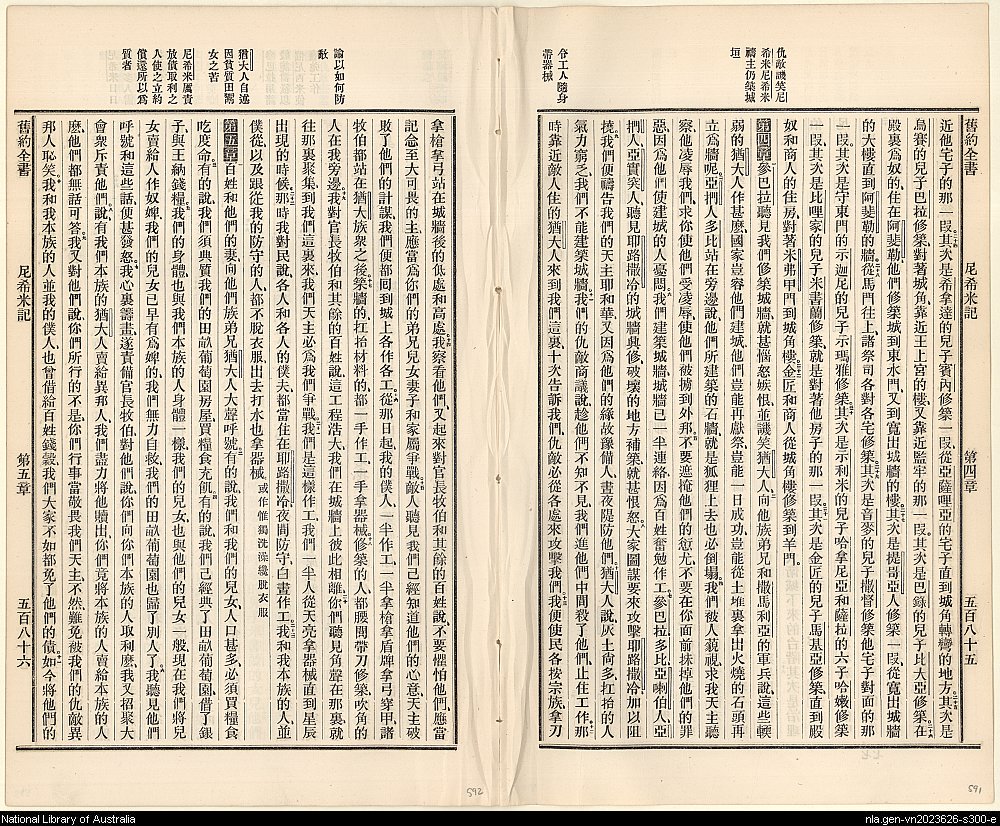 舊約全書 尼希米記 第四章 五百八十五
仇敵譏笑尼
希米尼希米
禱主仍築城
垣
令工人隨身
帶器械
近他宅子的那一段其次是希拿達的兒子賓內修築一段從亞薩哩亞的宅子直到城角轉彎的地方其次是
烏賽的兒子巴拉修築對著城角靠近王上宮的樓又靠近監牢的那一段其次是巴錄的兒子比大亞修築在
殿裏為奴的住在阿斐勒他們修築城到東水門又到寬出城牆的樓其次是提哥亞人修築一段從寬出城牆
的大樓直到阿斐勒的牆從馬門往上諸祭司各對各宅修築其次是音麥的兒子撒督修築他宅子對面的那
一段其次是守東門的示迦尼的兒子示瑪雅修築其次是示利米的兒子哈拿尼亞和薩拉的六子哈嫩修築
一段其次是比哩家的兒子米書蘭修築就是對著他房子的那一段其次是金匠的兒子馬基亞修築直到殿
奴和商人的住房對著米弗甲門到城角樓金匠和商人從城角樓修築到羊門
第四章參巴拉聽見我們修築城牆就甚惱怒嫉恨並譏笑猶大人向他族弟兄和撒馬利亞的軍兵說這些輭
弱的猶大人作甚麼國家豈容他們建城他們豈能再獻祭豈能一日成功豈能從土堆裏拿出火燒的石頭再
立為牆呢亞捫人多比站在旁邊說他們所建築的石牆就是狐狸上去也必倒塌我們被人藐視求我天主聽
察他凌辱我們求你使他們受凌辱使他們被擄到外邦不要遮掩他們的愆尤不要在你面前抹掉他們的罪
惡因為他們使建城的人憂悶我們建築城牆城牆已一半連絡因為百姓奮勉作工參巴拉多比亞喇伯人亞
捫人亞實突人聽見耶路撒冷的城牆興修破壞的地方補築就甚恨怒大家圖謀要來攻擊耶路撒冷加以阻
撓我們便禱告我們的天主耶和華又因為他們的緣故豫備人晝夜隄防他們猶大人說灰土尚多扛抬的人
氣力窮乏我們不能建築城牆我們的仇敵商議說趁他們不知不見我們進他們中間殺了他們止住工作那
時靠近敵人住的猶大人來到我們這裏十次告訴我們仇敵必從各處來攻擊我們我便使民各按宗族拿刀
諭以如何防
敵
猶大人自述
因貧質田鬻
女之苦
尼希米厲責
放債取利之
人使之立約
償還所以為
質者
拿槍拿弓站在城牆後的低處和高處我察看他們又起來對官長牧伯和其餘的百姓說不要懼怕他們應當
記念至大可畏的主應當為你們的弟兄兒女妻子和家屬爭戰敵人聽見我們已經知道他們的心意天主破
敗了他們的計謀我們便都回到城上各作各工從那日起我的僕人一半作工一半拿槍拿盾牌拿弓穿甲諸
牧伯都站在猶大族眾之後築牆的扛抬材料的都一手作工一手拿器械修築的人都腰間帶刀修築吹角的
人在我旁邊我對官長牧伯和其餘的百姓說這工程浩大我們在城牆上彼此相離你們聽見角聲在那裏就
往那裏聚集到我們這裏來我們天主必為我們爭戰我們是這樣作工我們一半人從天亮拿器械直到星辰
出現的時候那時我對民說各人和各人的僕夫都當住在耶路撒冷夜間防守白晝作工我和我本族的人並
僕從以及跟從我的防守的人都不脫衣服出去打水也拿器械或作惟獨沈澡纔脫衣服
第五章百姓和他們的妻向他們族弟兄猶大人大聲呼號有的說我們和我們的兒女人口甚多必須買糧食
吃度命有的說我們須典質我們的田畝葡萄園房屋買糧食充飢有的說我們已經典了田畝葡萄園借了銀
子與王納錢糧我們的身體也與我們本族的人身體一樣我們的兒女也與他們的兒女一般現在我們將兒
女賣給人作奴婢我們的兒女已早有為婢的我們無力自救我們的田畝葡萄園也歸了別人了我聽見他們
呼號和這些話便甚發怒我心裏籌畫遂責備官長牧伯對他們說你們向你們本族的人取利麼我又招聚大
會眾斥責他們說有我們本族的猶大人賣給異邦人我們盡力將他贖出你們竟將本族的人賣給本族的人
麼他們都無話可答我又對他們說你們所行的不是你們行事當敬畏我們天主不然難免被我們的仇敵異
邦人恥笑我和我本族的人並我的僕人也曾借給百姓錢穀我們大家不如都免了他們的債如今將他們的
舊約全書 尼希米記 第五章 五百八十六
592
591
National Library of Australia
nla.gen-vn2023626-s300-e